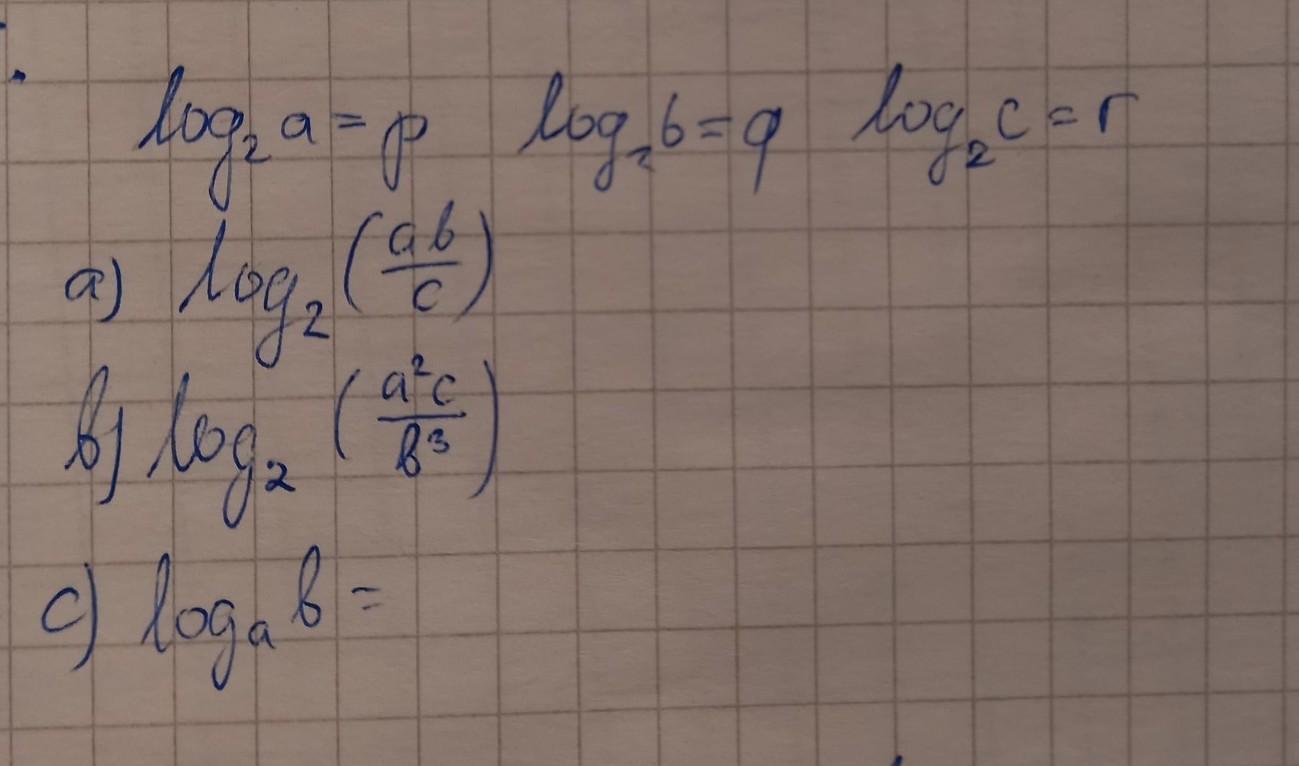 log₂ a = p log₂ b = q log₂ c = r
a) log₂ (ab/c)
b) log₂ (a²c/b³)
c) logₐ b =